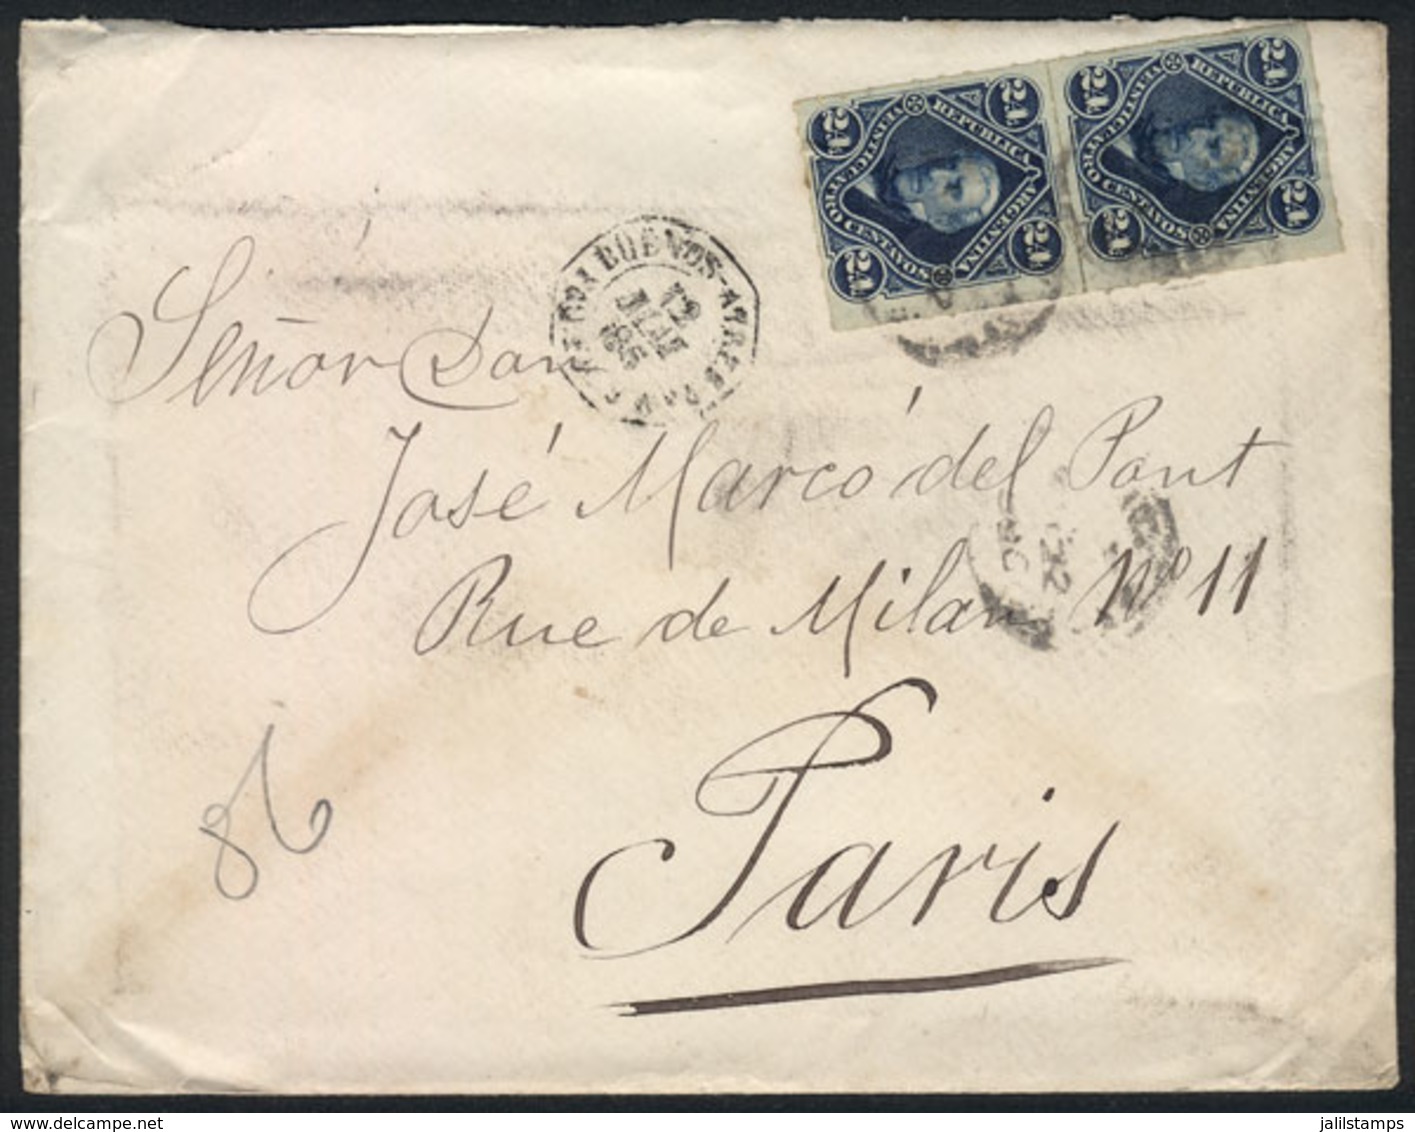 24 24
REPUBLICA ARGENTINA
VEINTICUATRO CENTAVOS
24 24
24 24
REPUBLICA ARGENTINA
VEINTICUATRO CENTAVOS
24 24
BUENOS-AYRES
12
85
Señor Don
José Marcó del Pont
Rue de Milan Nº 11
Paris
jalilstamps